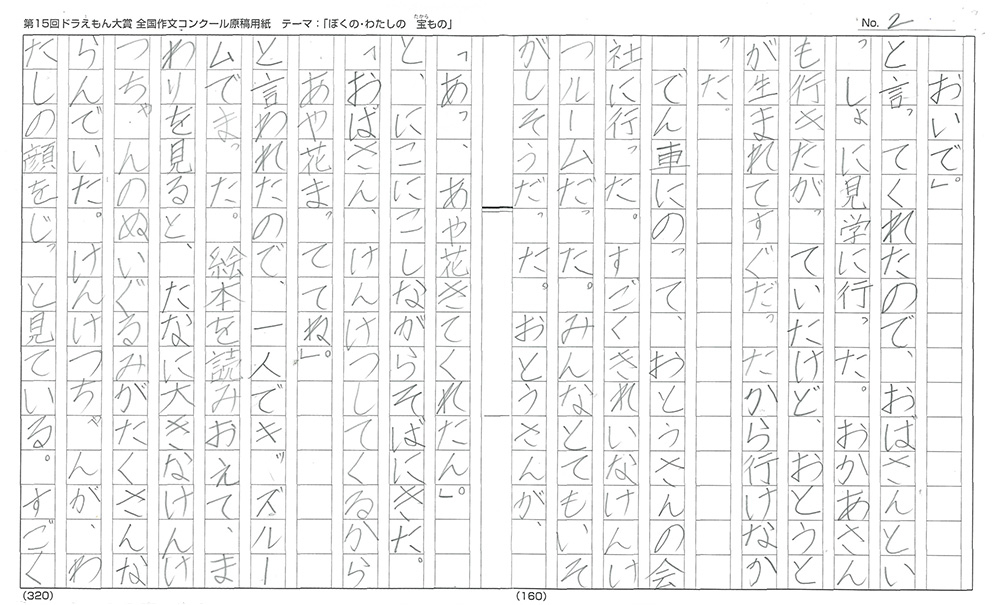 第15回ドラえもん大賞 全国作文コンクール原稿用紙　テーマ：「ぼくの・わたしの　宝（たから）もの」
No. 2
おいで」。
と言ってくれたので、おばさんとい
っしょに見学に行った。おかあさん
も行きたがっていたけど、おとうと
が生まれてすぐだったから行けなか
った。
でん車にのって、おとうさんの会
社に行った。すごくきれいなけんけ
つルームだった。みんなとてもいそ
がしそうだった。おとうさんが、
「あっ、あや花きてくれたん」。
と、にこにこしながらそばにきた。
「おばさん、けんけつしてくるから
あや花まっててね」。
と言われたので、一人でキッズルー
ムでまった。絵本を読みおえて、ま
わりを見ると、たなに大きなけんけ
つちゃんのぬいぐるみがたくさんな
らんでいた。けんけつちゃんが、わ
たしの顔をじっと見ている。すごく
(160)
(320)